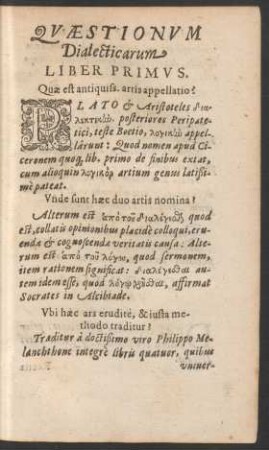 QVÆSTIONVM
Dialecticarum
LIBER PRIMVS.
Quæ est antiquiss. artis appellatio?
PLATO & Aristoteles διαλεκτικὼ.
posteriores Peripatetici,
teste Boetio, λογικὼ appellârunt:
Quod nomen apud Ciceronem
quoq; lib. primo de finibus extat,
cum alioquin λογικὼ artium genus latissimè
pateat.
Vnde sunt hæc duo artis nomina?
Alterum est ἀπὸ τοῦ διαλέγεσθαι, quod
est, collatis opinionibus placidè colloqui, eruendæ
& cognoscendæ veritatis causa: Alterum
est ἀπὸ τοῦ λόγου, quod sermonem,
item rationem significat: διαλέγεσθαι autem
idem esse, quod λόγῳ χρῆσθαι, affirmat
Socrates in Alcibiade.
Vbi hæc ars eruditè, & iusta methodo
traditur?
Traditur à doctissimo viro Philippo Melanchthone
integrè libris quatuor, quibus